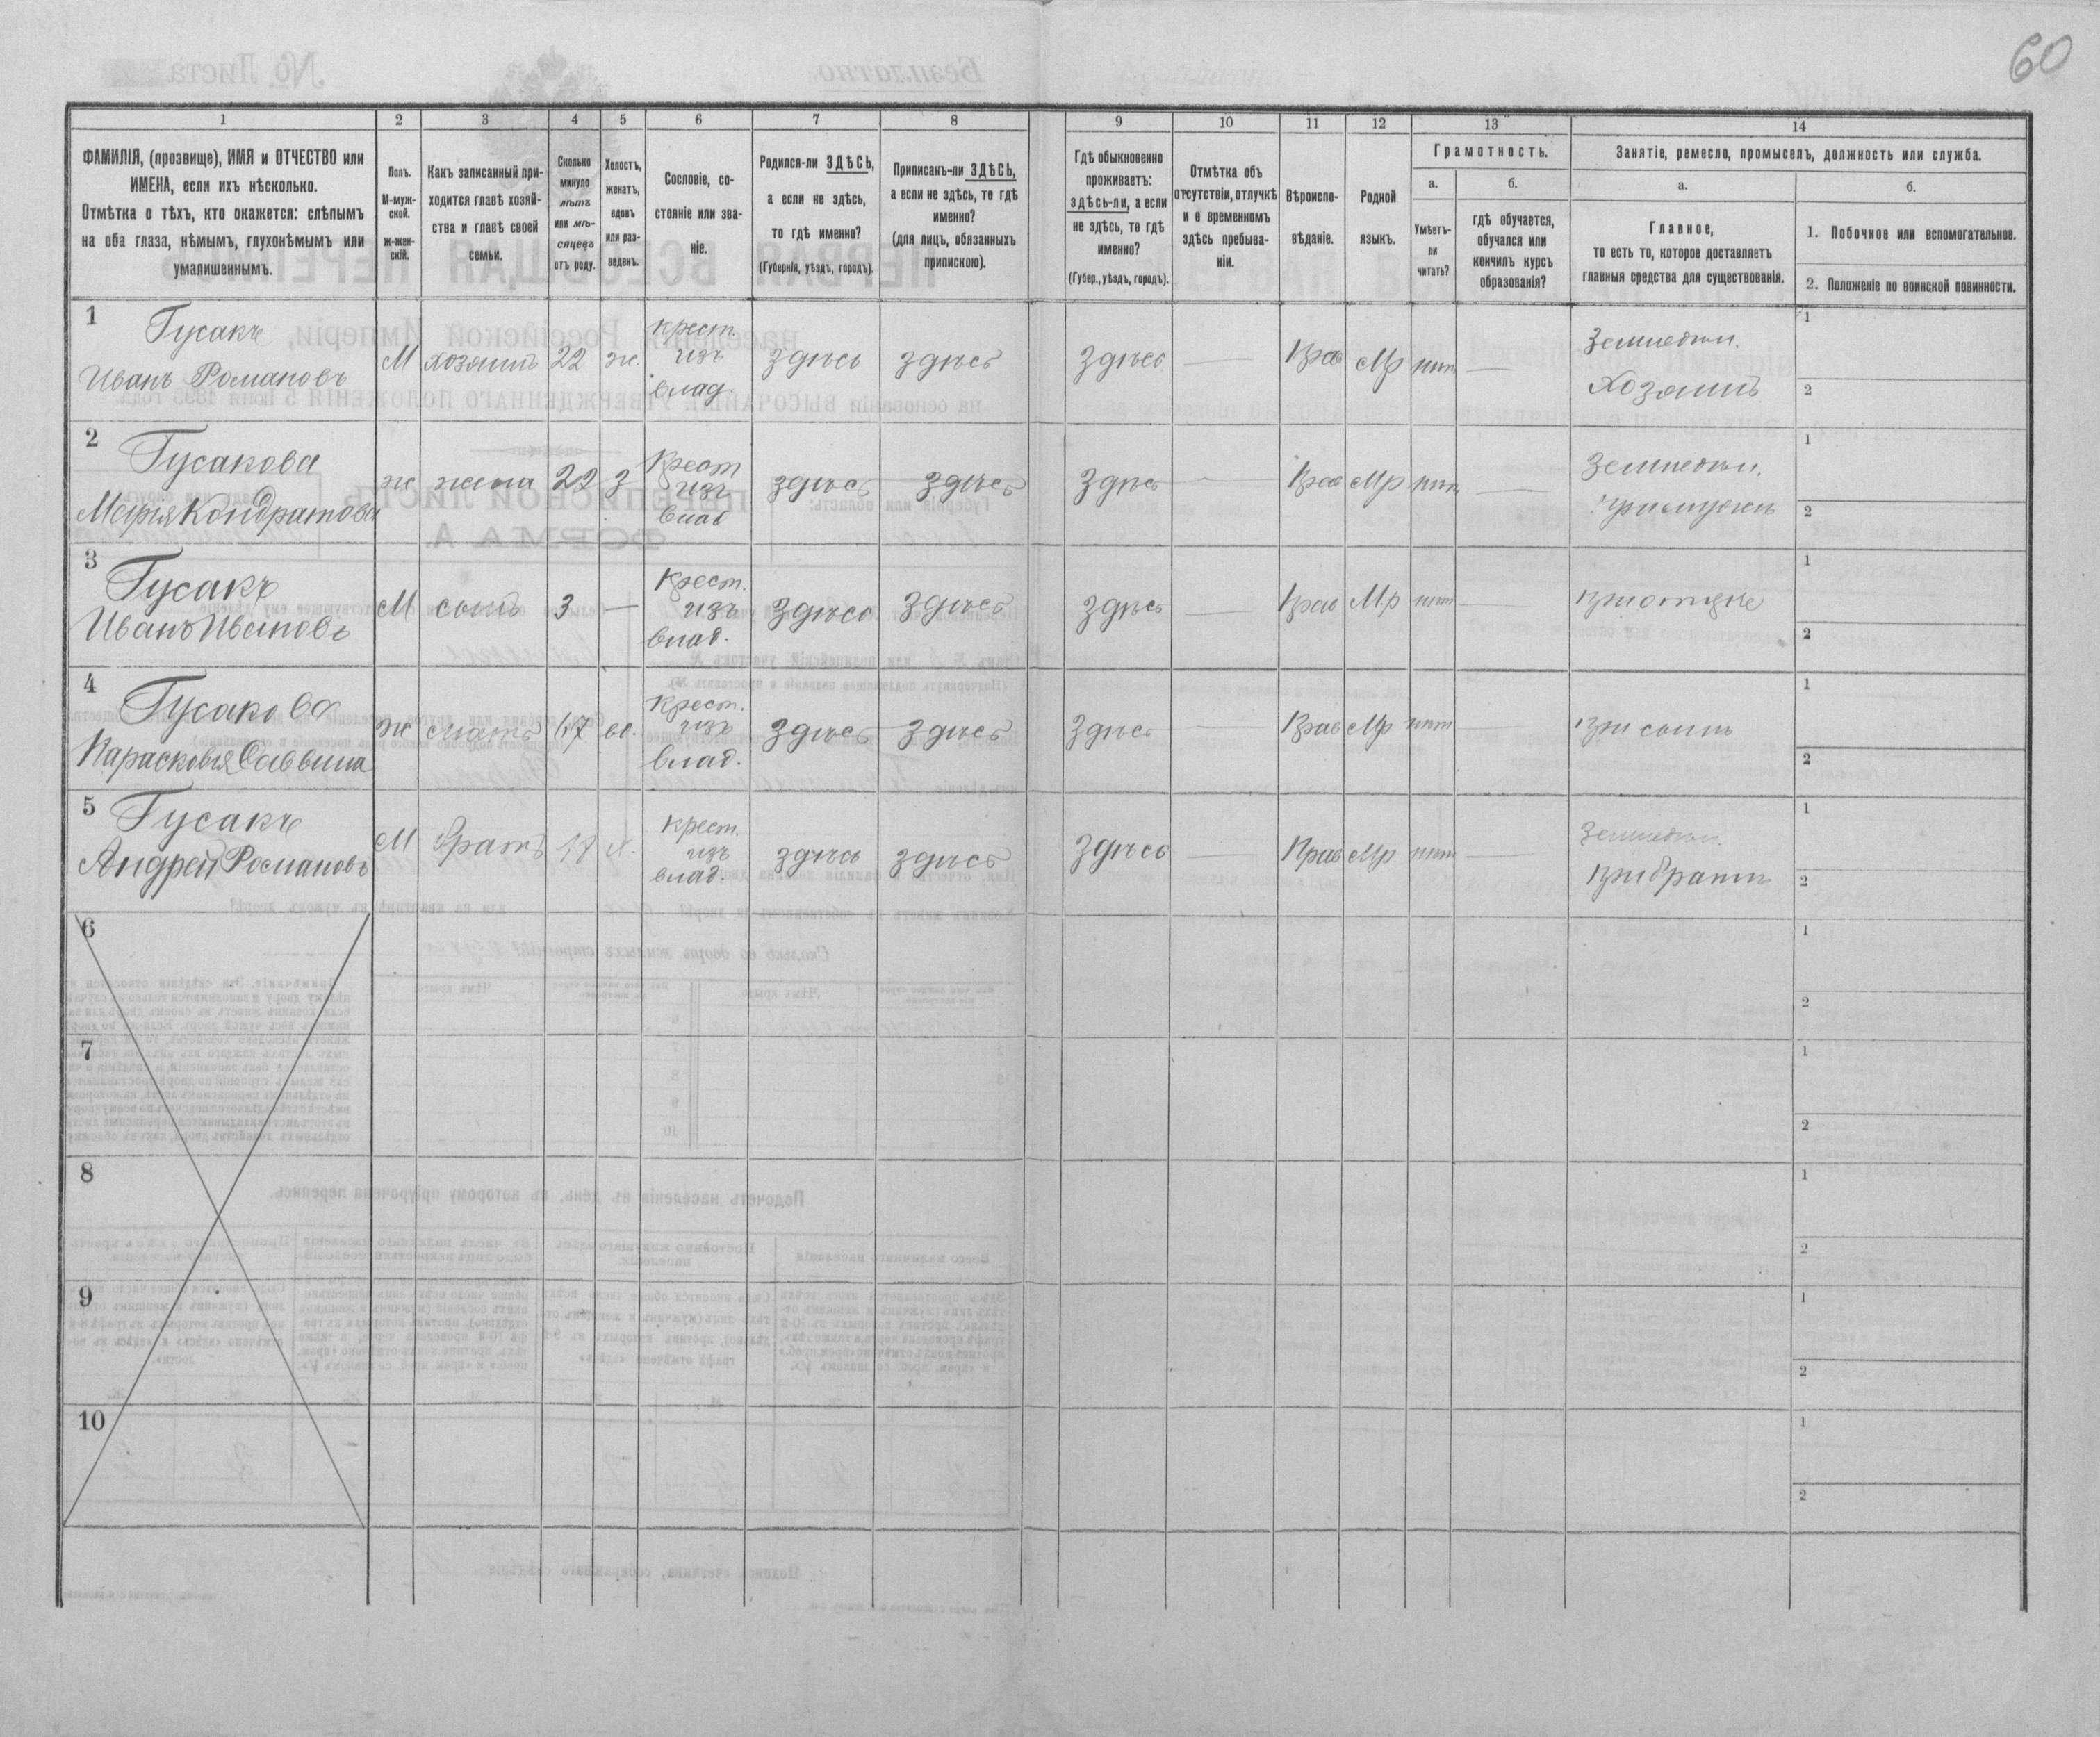 60
1 2 3 4 5 6 7 8 9 10 11 12 13 14
ФАМИЛІЯ, (прозвище), ИМЯ и ОТЧЕСТВО или
ИМЕНА, если ихъ нѣсколько.
Отмѣтка о тѣхъ, кто окажется: слѣпымъ
на оба глаза, нѣмымъ, глухонѣмымъ или
умалишеннымъ.
Полъ.
М-муж-
ской.
ж-жен-
скій.
Какъ записанный при-
ходится главѣ хозяй-
ства и главѣ своей
семьи.
Сколько
минуло
лѣтъ
или мѣ-
сяцевъ
отъ роду.
Холостъ,
женатъ,
вдовъ
или раз-
веденъ.
Сословіе, со-
стояніе или зва-
ніе.
Родился-ли ЗДѢСЬ,
а если не здѣсь,
то гдѣ именно?
(Губернія, уѣздъ, городъ).
Приписанъ-ли ЗДѢСЬ,
а если не здѣсь, то гдѣ
именно?
(для лицъ, обязанныхъ
припискою).
Гдѣ обыкновенно
проживаетъ:
здѣсь-ли, а если
не здѣсь, то гдѣ
именно?
(Губер., уѣздъ, городъ).
Отмѣтка объ
отсутствіи, отлучкѣ
и о временномъ
здѣсь пребыва-
ніи.
Вѣроиспо-
вѣданіе.
Родной
языкъ.
Грамотность.
а.
Умѣетъ-
ли
читать?
б.
гдѣ обучается,
обучался или
кончилъ курсъ
образованія?
Занятіе, ремесло, промыселъ, должность или служба.
а.
Главное,
то есть то, которое доставляетъ
главныя средства для существованія.
б.
1. Побочное или вспомогательное.
2. Положеніе по воинской повинности.
1
Гусакъ
Иванъ Романовъ
М
хозяинъ
22
ж.
крест.
изъ
влад.
здѣсь
здѣсь
здѣсь
—
Прав
Мр
нѣт
—
Земледѣл.
Хозяинъ
1
2
2
Гусакова
Марія Кондратова
ж
жена
22
З
Крест
изъ
влад
здѣсь
здѣсь
здѣсь
—
Прав
Мр
нѣт
—
Земледѣл.
При мужѣ
1
2
3
Гусакъ
Иванъ Ивановъ
М
сынъ
3
—
Крест.
изъ
влад.
здѣсь
здѣсь
здѣсь
—
Прав
М.р
нѣт
—
при отцѣ
1
2
4
Гусакова
Парасковія Саввина
ж
мать
вд.
Крест.
изъ
влад.
здѣсь
здѣсь
здѣсь
—
Прав
Мр
нѣт
—
при сынѣ
1
2
5
Гусакъ
Андрей Романовъ
М
братъ
18
х.
Крест.
изъ
влад.
здѣсь
здѣсь
здѣсь
—
Прав
Мр
нѣт
—
Земледѣл.
при братѣ
1
2
6
1
2
7
1
2
8
1
2
9
1
2
10
1
2